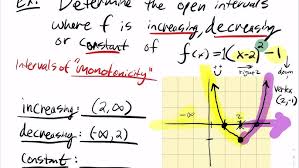 Ex: Determine the open intervals
where f is increasing, decreasing
or constant of f(x)=1(x-2)²-1
right 2
down
Intervals of "monotonicity"
-∞
2
vertex
(2,-1)
increasing: (2,∞)
decreasing: (-∞,2)
constant: